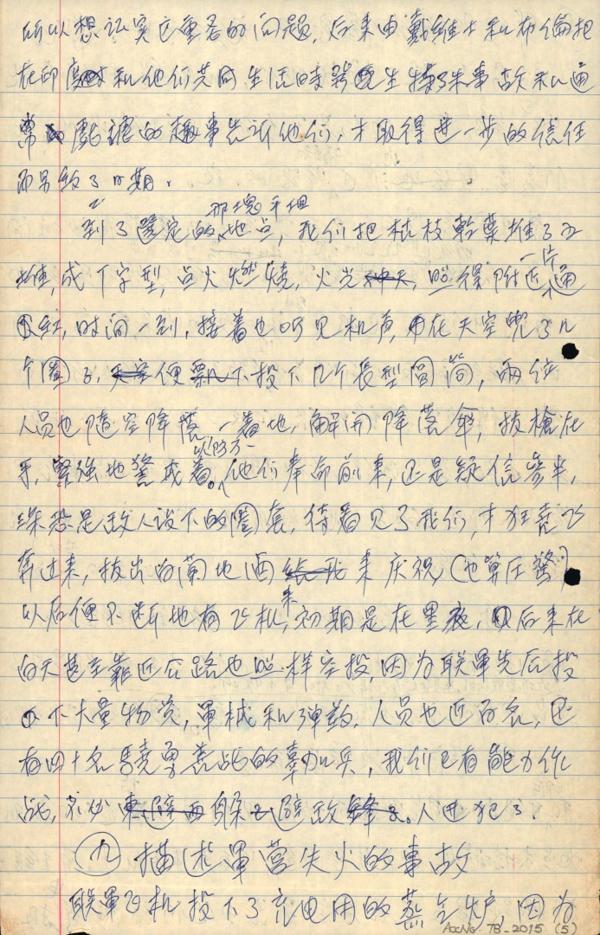 所以想证实它重名的问题，后来由戴维斯和布伦把
在印度和他们共同生活时发生特殊事故和通
常戏谑的趣事告诉他们，才取得进一步的信任
而另致了日期。
到了选定的那块平坦地点，我们把枯枝干叶堆了三
堆，成丁字型，点火燃烧，火光，照得附近一片通
红，时间一到，接着也听见机声，在天空兜了几
个圈子，便投下几个长型圆筒，两位
人员也随空降落，一着地，解开降落伞，拔枪在
手，坚强地警戒着。他们奉命前来，还是疑信参半，
深恐是敌人设下的圈套，待看见了我们，才狂奔飞
奔过来，拔出白兰地酒来庆祝，（也算压惊）
以后便不断地有飞机来，初期是在黑夜，后来在
白天甚至靠近公路也照样空投，因为联军先后投
下大量物资，军械和弹药，人员也近百名，还
有四十名骁勇善战的辜加兵，我们已有能力作
战，不必东避西躲逃避敌人进犯了。
（九）描述军营失火的事故
联军飞机投下了充电用的蒸气炉，因为
Acc No. TB-2015 (5)